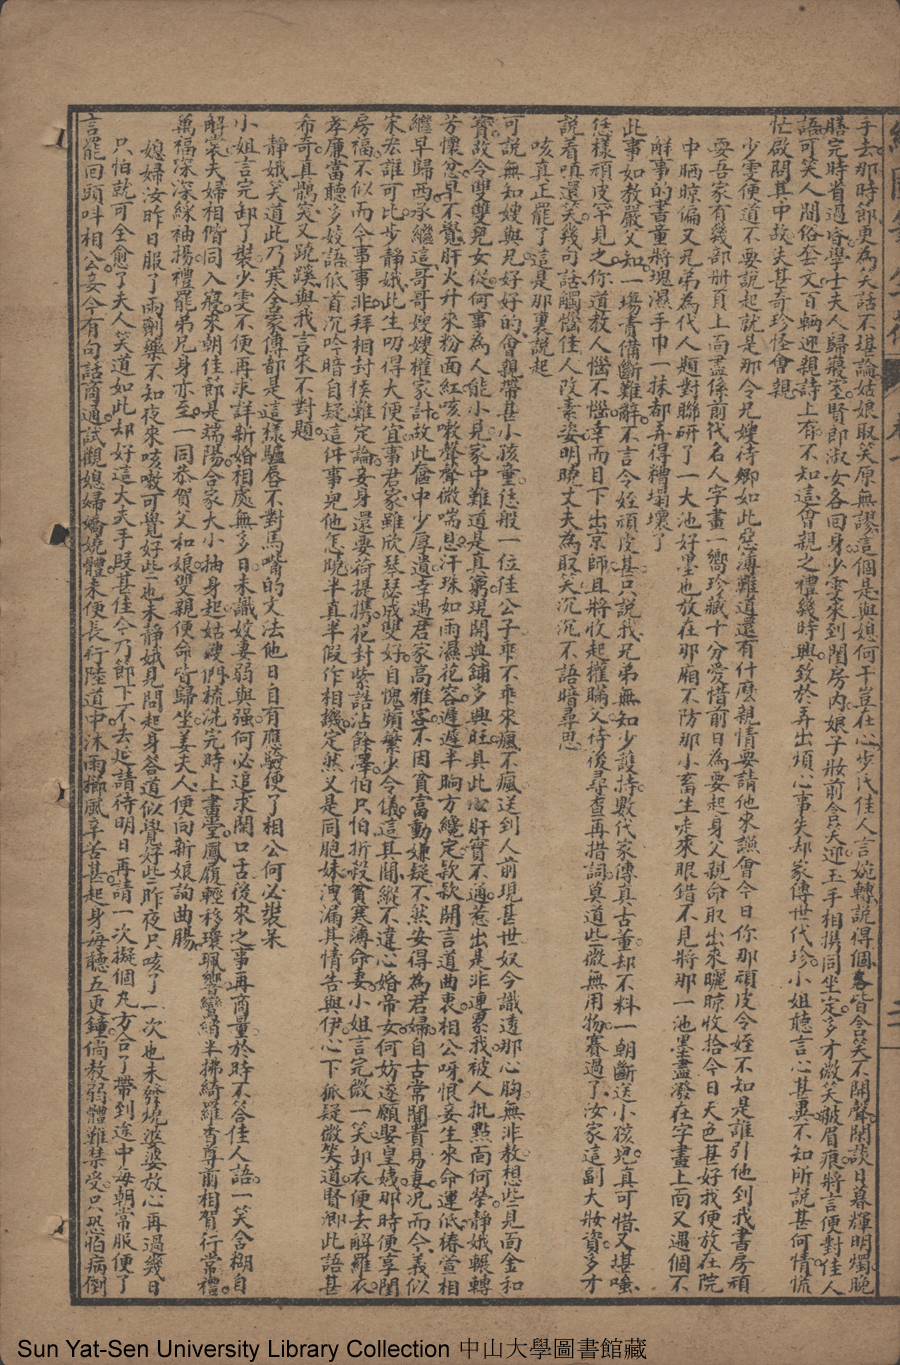 手去那時節更為笑話不堪論姑娘取笑原無謬這個是與媳何干豈在心步氏佳人言婉轉說得個各皆含笑不開聲閑談日暮輝明燭晚
膳完時省過容學士夫人歸寢室賢郎淑女各回身少雯來到閨房內娘子妝前含笑迎玉手相携同坐定多才微笑皺眉痕將言便對佳人
語可笑人間俗套文百輛迎親詩上有不知這會親之禮幾時興致於弄出煩心事失却家傳世代珍小姐聽言心甚異不知所說甚何情慌
忙啟問其中故夫甚奇珍怪會親
少雯便道不要說起就是那令兄嫂待鄉如此惡薄難道還有什麼親情要請他來讌會今日你那頑皮令姪不知是誰引他到我書房頑
耍吾家有幾部册頁上面盡係前代名人字畫一嚮珍藏十分愛惜前日為要起身父親命取出來曬晾收拾今日天色甚好我便放在院
中晒晾偏又兄弟為代人題對聯研了一大池好墨也放在那廂不防那小畜生走來眼錯不見將那一池墨盡潑在字畫上面又遇個不
解事的書童將塊濕手巾一抹都弄得糟塌壞了
此事如教嚴父知一塲責備斷難辭不言令姪頑皮甚只說我兄弟無知少護持數代家傳真古董却不料一朝斷送小孩兒真可惜又堪嗤
恁樣頑皮罕見之你道教人惱不惱幸而目下出京師且將收起權瞞父待後尋查再措詞莫道此微無用物賽過了汝家這副大妝資多才
說着嗔還笑幾句話觸惱佳人改素姿明曉丈夫為取笑沉沉不語暗尋思
咳真正罷了這是那裏說起
可說無知嫂與兄好好的會親帶甚小孩童恁般一位佳公子乖不乖來瘋不瘋送到人前現甚世奴今識透那心胸無非教想些見面金和
寶故令雙雙兒女從何事為人能小見家中難道是真窮現開典鋪多興旺具此心肝實不通惹出是非連累我被人批點面何榮靜娥輾轉
芳懷忿早不覺肝火升來粉面紅咳嗽聲聲微喘息汗珠如雨濕花容遲遲半晌方纔定款款開言道曲衷相公呀恨妾生來命運低椿萱相
繼早歸西承繼這哥哥嫂嫂權家計故此奩中少厚遺幸遇君家高雅客不因貧富動嫌疑不然安得為君婦自古常聞貴易妻况而今義似
宋宏誰可比步靜娥此生叨得大便宜事君家雖欣琴瑟成雙好自愧蘋繁少令儀這其間縱不違心婚帝女何妨遂願娶皇姨那時便享閨
房福不似而今事事非拜相封侯難定論妾身還要荷提携花封紫誥沾餘澤怕只怕折殺貧寒薄命妻小姐言完微一笑卸衣便去解羅衣
孝廉當聽多姣語低首沉吟暗自疑這件事兒他怎曉半真半假作相譏定然又是同胞妹洩漏其情告與伊心下狐疑微笑道賢卿此語甚
希奇真鶻突又蹺蹊與我言來不對題
靜娥笑道此乃寒舍家傳都是這樣驢唇不對馬嘴的文法他日自有應驗便了相公何必裝呆
小姐言完卸了裝少雯不便再求詳新婚相處無多日未識姣妻弱與強何必追求閑口舌後來之事再商量於時不答佳人語一笑含糊自
解裳夫婦相偕同入寢來朝佳節是端陽合家大小抽身起姑嫂們梳洗完時上畫堂鳳履輕移環珮響鸞綃半拂綺羅香尊前相賀行常禮
萬福深深綵袖揚禮罷弟兄身亦至一同恭賀父和娘雙親便命皆歸坐姜夫人便向新娘詢曲腸
媳婦汝昨日服了兩劑藥不知夜來咳嗽可覺好些也未靜娥見問起身答道似覺好些昨夜只咳了一次也未發燒婆婆放心再過幾日
只怕就可全愈了夫人笑道如此却好這大夫手段甚佳今乃節下不去延請待明日再請一次擬個丸方合了帶到途中每朝常服便了
言罷回頭呌相公妾今有句話商通試觀媳婦嬌嬈體未便長行陸道中沐雨櫛風辛苦甚起身每聽五更鐘倘教弱體難禁受只恐怕病倒
Sun Yat-Sen University Library Collection 中山大學圖書館藏